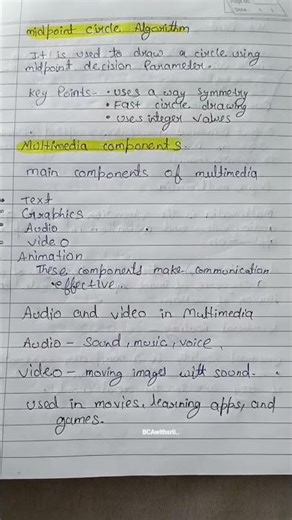 midpoint circle Algorithm
It is used to draw a circle using
midpoint decision Parameter.
Key Points - • uses a way symmetry
• Fast circle drawing
• uses integer values
Multimedia components
main components of multimedia
• Text
Graphics
Audio
• video
Animation
These components make communication
effective
Audio and video in Multimedia
Audio - sound, music, voice
Video - moving images with sound.
used in movies, learning apps, and
games.